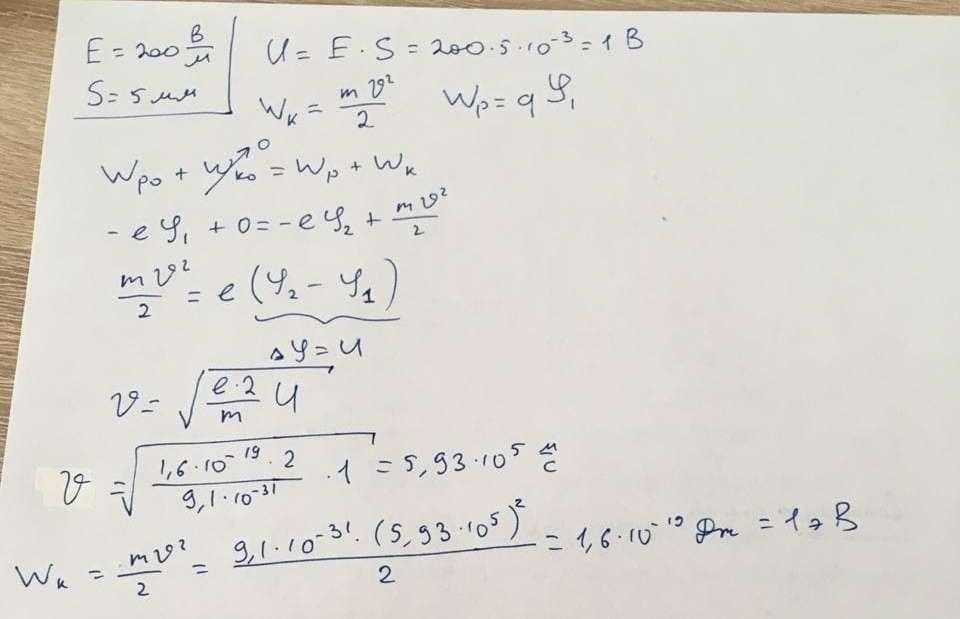 E = 200 В/м
S = 5 мм
U = E · S = 200 · 5 · 10⁻³ = 1 В
Wₖ = mϑ²/2 Wₚ = q φ₁
Wₚ₀ + Wₖ₀ ↗ 0 = Wₚ + Wₖ
- e φ₁ + 0 = - e φ₂ + mϑ²/2
mϑ²/2 = e (φ₂ - φ₁)
Δφ = U
ϑ = √(e·2/m U)
ϑ = √(1,6·10⁻¹⁹·2/9,1·10⁻³¹ · 1) = 5,93·10⁵ м/с
Wₖ = mϑ²/2 = 9,1·10⁻³¹·(5,93·10⁵)²/2 = 1,6·10⁻¹⁹ Дж = 1 эВ